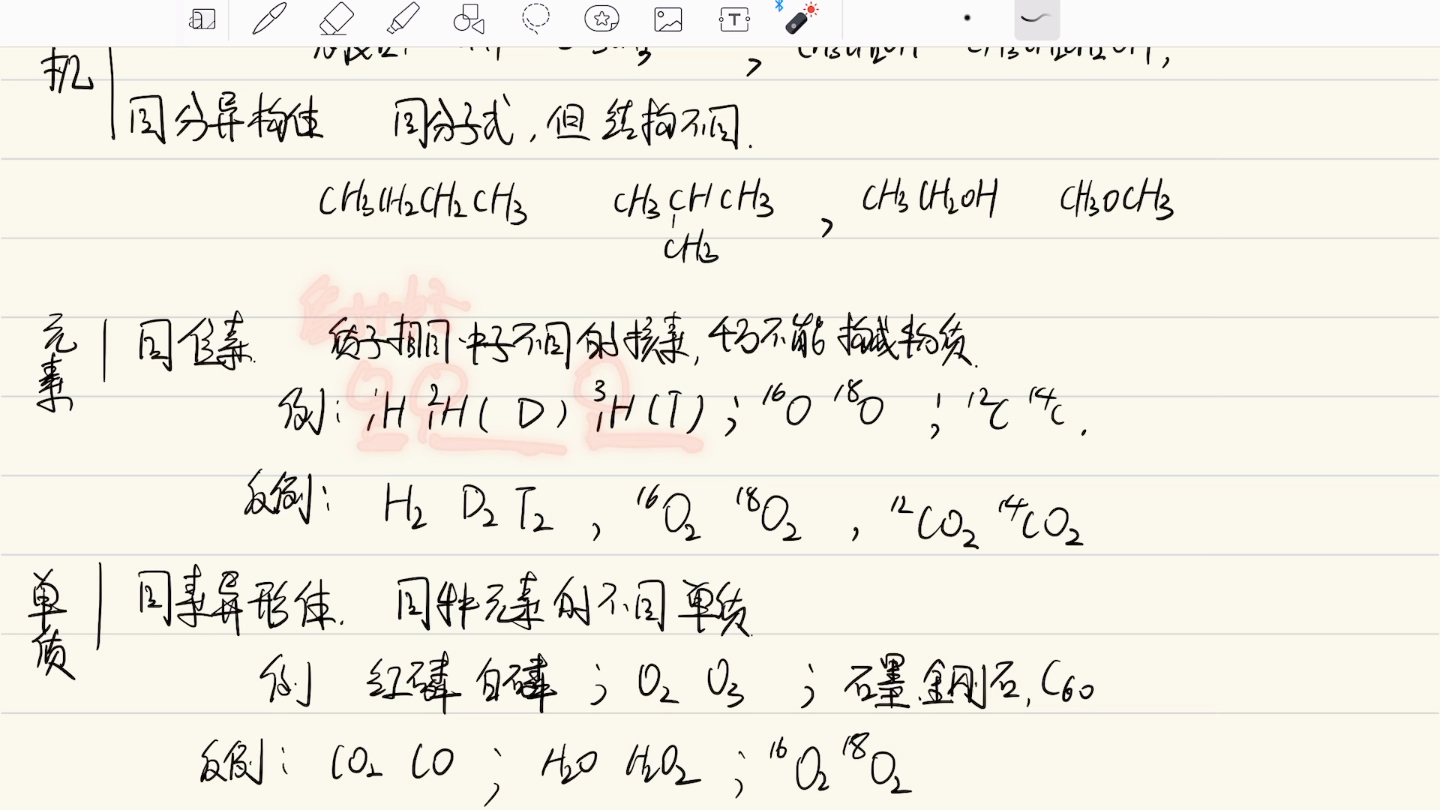 机
CH3CH2OH CH3CH2CH2OH,
同分异构体 同分子式,但结构不同.
CH3CH2CH2CH3 CH3CHCH3 , CH3CH2OH CH3OCH3
CH3
元素 同位素. 质子相同中子不同的核素,均不能构成物质.
例: ¹₁H ²₁H(D) ³₁H(T) ; ¹⁶O ¹⁸O ; ¹²C ¹⁴C.
反例: H2 D2 T2 , ¹⁶O2 ¹⁸O2 , ¹²CO2 ¹⁴CO2
单质 同素异形体. 同种元素的不同单质
例 红磷 白磷 ; O2 O3 ; 石墨.金刚石, C60
反例: CO2 CO ; H2O H2O2 ; ¹⁶O2 ¹⁸O2